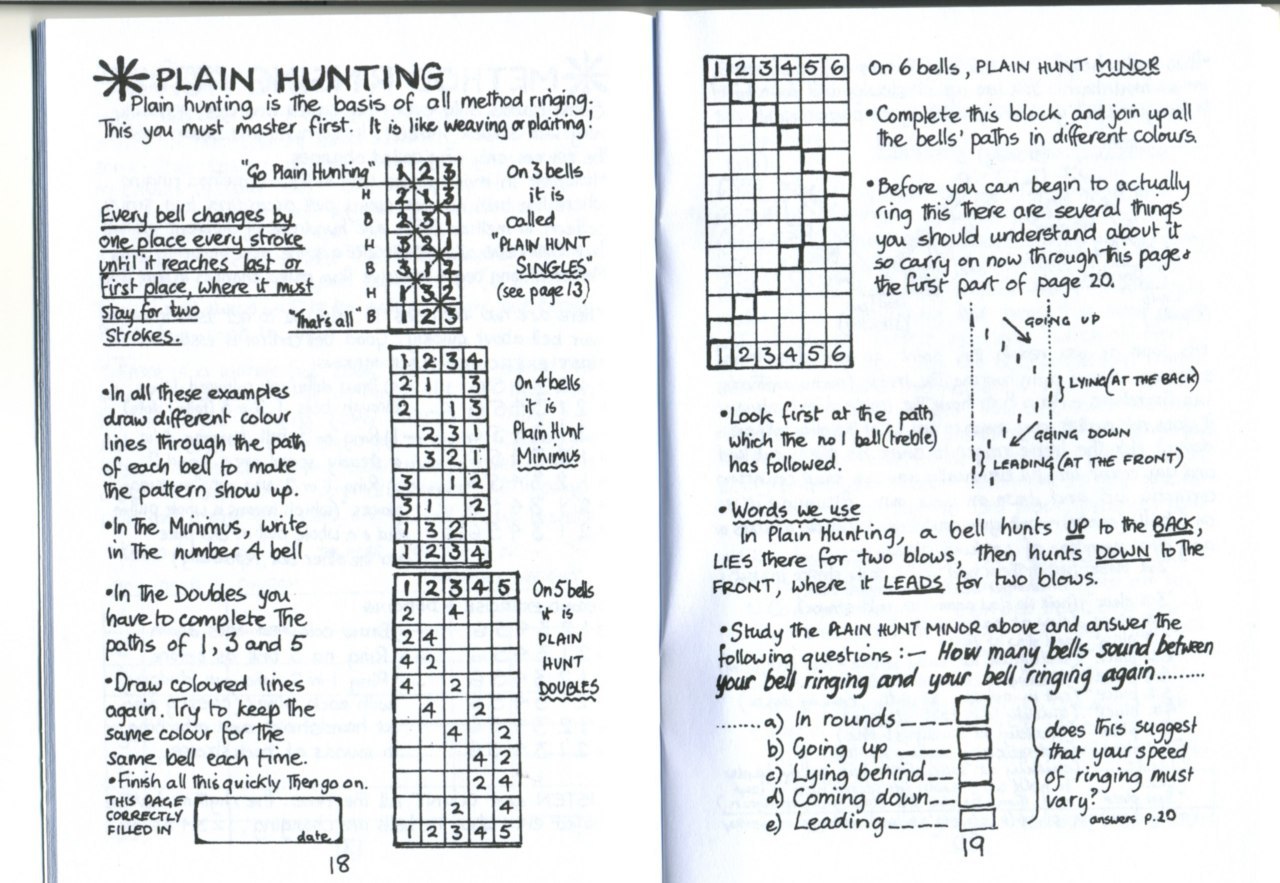 PLAIN HUNTING
Plain hunting is the basis of all method ringing.
This you must master first. It is like weaving or plaiting!
"Go Plain Hunting 1 2 3
H 2 1 3
B 2 3 1
H 3 2 1
B 3 1 2
H 1 3 2
"That's all" B 1 2 3
On 3 bells
it is
called
"PLAIN HUNT
SINGLES"
(see page 13)
Every bell changes by
one place every stroke
until it reaches last or
first place, where it must
stay for two
strokes.
1 2 3 4
2 1 3
2 1 3
2 3 1
3 2 1
3 1 2
3 1 2
1 3 2
1 2 3 4
On 4 bells
it is
Plain Hunt
Minimus
•In all these examples
draw different colour
lines through the path
of each bell to make
the pattern show up.
•In the Minimus, write
in the number 4 bell
•In the Doubles you
have to complete the
paths of 1, 3 and 5
•Draw coloured lines
again. Try to keep the
same colour for the
same bell each time.
•Finish all this quickly then go on.
THIS PAGE
CORRECTLY
FILLED IN
date
1 2 3 4 5
2 4
2 4
4 2
4 2
4 2
4 2
4 2
2 4
2 4
1 2 3 4 5
On 5 bells
is
PLAIN
HUNT
DOUBLES
18
1 2 3 4 5 6
1 2 3 4 5 6
On 6 bells, PLAIN HUNT MINOR
•Complete this block and join up all
the bells' paths in different colours.
•Before you can begin to actually
ring this there are several things
you should understand about it
so carry on now through this page &
the first part of page 20.
GOING UP
LYING (AT THE BACK)
GOING DOWN
LEADING (AT THE FRONT)
•Look first at the path
which the no 1 bell (treble)
has followed.
•Words we use
In Plain Hunting, a bell hunts UP to the BACK,
LIES there for two blows, then hunts DOWN to the
FRONT, where it LEADS for two blows.
•Study the PLAIN HUNT MINOR above and answer the
following questions :— How many bells sound between
your bell ringing and your bell ringing again.........
........a) In rounds
b) Going up
c) Lying behind
d) Coming down
e) Leading
does this suggest
that your speed
of ringing must
vary?
answers p.20
19